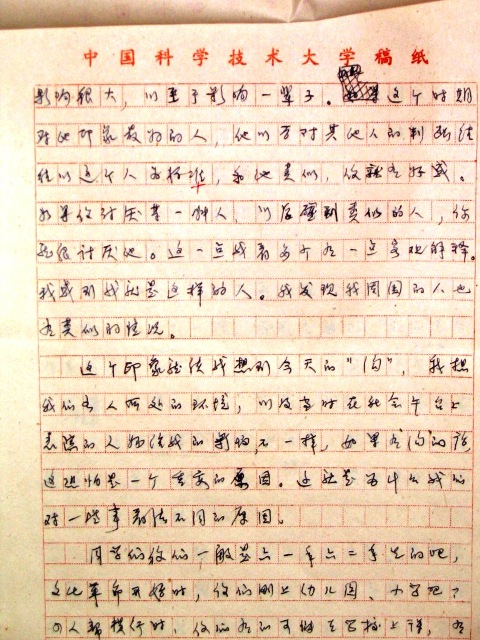 中国科学技术大学稿纸
影响很大,以至于影响一辈子。这个时期
对他印象最好的人,他以后对其他人的判断往
往以这个人为标准,和他类似,你就有好感。
如果你讨厌某一种人,以后碰到类似的人,你
就很讨厌他。这一点我看多少有一点客观解释。
我感到我就是这样的人。我发现我周围的人也
有类似的情况。
这个印象能使我想到今天的"沟",我想
我们各人所处的环境,以及当时在社会午台上
表演的人物给我的影响不一样,如果有沟的话,
这恐怕是一个重要的原因。这就是为什么我们
对一些事看法不同的原因。
同学们你们一般是六一年六二年生的吧,
文化革命开始时,你们刚上幼儿园、小学吧?
四人帮横行时,你们有的可能在学校上课,有